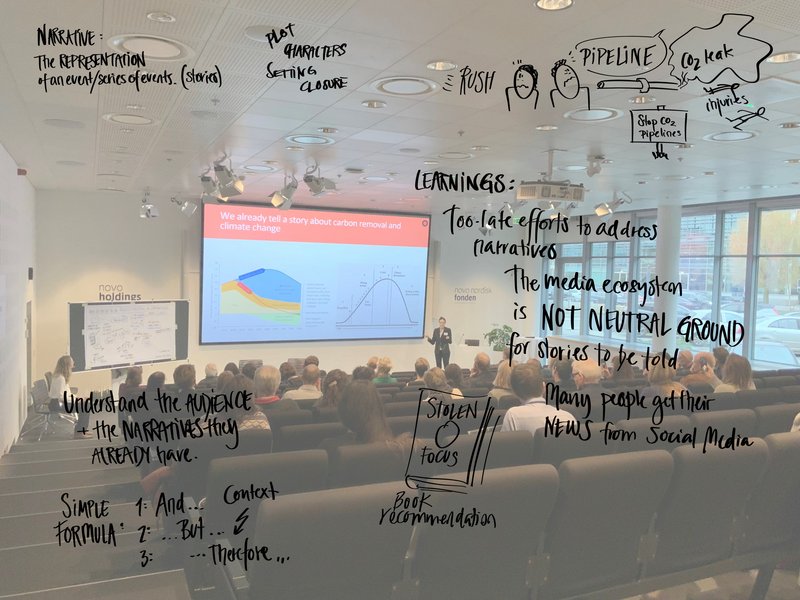 NARRATIVE:
The REPRESENTATION
of an event/series of events. (stories)
PLOT
CHARACTERS
SETTING
CLOSURE
RUSH
PIPELINE
CO2 leak
injuries
Stop CO2
pipelines
LEARNINGS:
Too-late efforts to address
narratives
The media ecosystem
is NOT NEUTRAL GROUND
for stories to be told
Many people get their
NEWS from Social Media
We already tell a story about carbon removal and
climate change
novo
holdings
novo nordisk
fonden
Understand the AUDIENCE
+ the NARRATIVES they
ALREADY have.
STOLEN
FOCUS
Book
recommendation
SIMPLE
FORMULA:
1: And... Context
2: ...But...
3: ...Therefore...